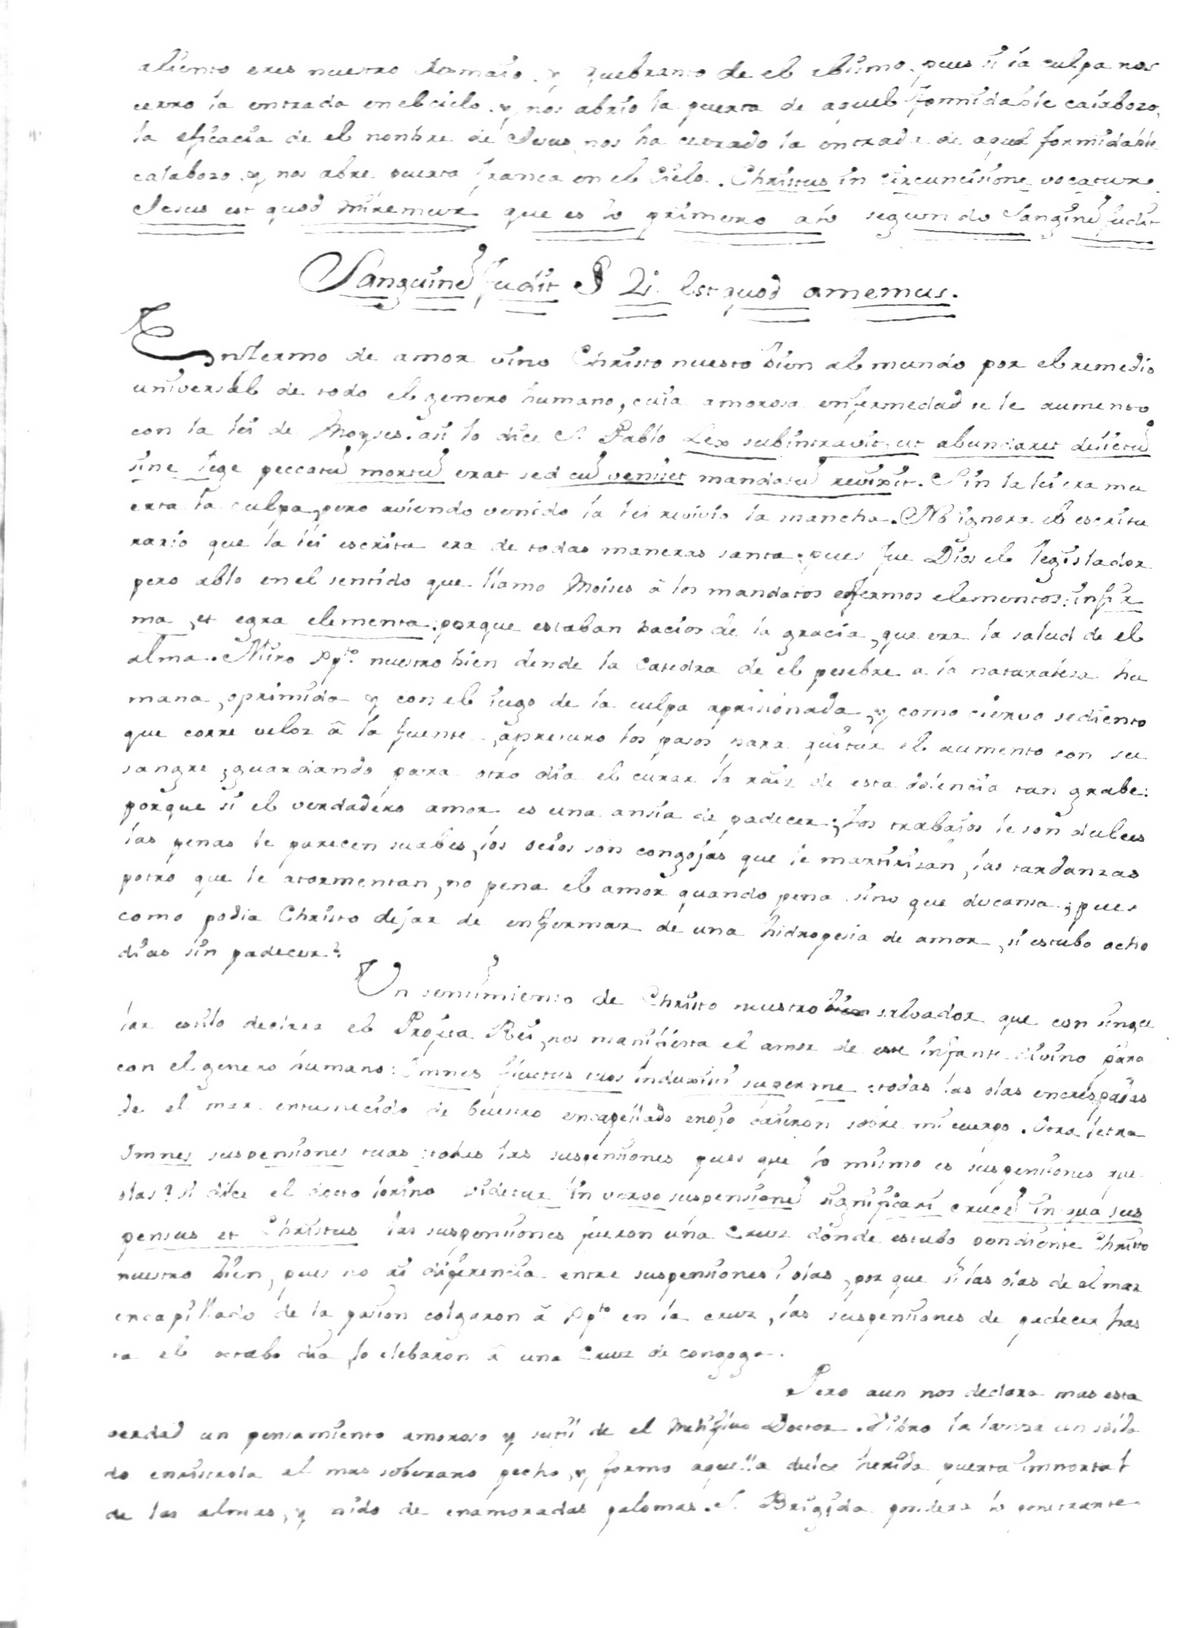 aliento eres nuestro desmaio, y quebranto de el abismo, pues si la culpa nos
cerro la entrada en el cielo, y nos abrio la puerta de aquel formidable calabozo,
la eficacia de el nombre de Jesus nos ha cerrado la entrada de aquel formidable
calabozo, y nos abre puerta franca en el Cielo. Christus in circuncisione vocatur
Jesus est quod miremur que es lo primero a lo segundo Sanguinẽ fudit
Sanguinẽ fudit § 2i. Est quod amemus.
Enfermo de amor vino Christo nuestro bien al mundo por el remedio
universal de todo el genero humano, cuia amorosa enfermedad se le aumento
con la lei de Moyses. asi lo dice S. Pablo Lex subintravit ut abundaret delictũ
sine lege peccatũ mortuũ erat sed cũ veniset mandatũ revixit. Sin la lei era mu
erta la culpa, pero aviendo venido la lei revivio la mancha. No ignora el escritu
rario que la lei escrita era de todas maneras santa, pues fue Dios el legislador
pero ablo en el sentido que llamo Moises â los mandatos enfermos elementos: infir
ma, et egra elementa, porque estaban bacios de la gracia, que era la salud de el
alma. Miro Xpto. nuestro bien dende la Catedra de el pesebre a la naturaleza hu
mana, oprimida y con el iugo de la culpa aprisionada, y como ciervo sediento
que corre veloz â la fuente, apresuro los pasos para quitar el aumento con su
sangre, guardando para otro dia el curar la raiz de esta dolencia tan grabe:
porque si el verdadero amor es una ansia de padecer, los trabajos le son dulces
las penas le parecen suabes, los ocios son congojas que le martirisan, las tardanzas
potro que le atormentan, no pena el amor quando pena sino que descansa; pues
como podia Christo dejar de enfermar de una hidropesia de amor, si estubo ocho
dias sin padecer?
Un sentimiento de Christo nuestro salvador que con singu
lar estilo declara el Profeta Rei, nos manifiesta el amor de este infante divino para
con el genero humano: Omnes fluctus tuos induxisti super me: todas las olas encrespadas
de el mar enfurecido de buestro encapillado enojo caieron sobre mi cuerpo. Otra letra
Omnes suspensiones tuas: todas las suspensiones pues que lo mismo es suspensiones que
olas? si dice el docto lorino videtur in verbo suspensionẽ significari crucẽ in qua sus
pensus et Christus las suspensiones fueron una Cruz donde estubo pendiente Christo
nuestro bien, pues no ai diferencia entre suspensiones i olas, por que si las olas de el mar
encapillado de la pasion colgaron â Xpto en la cruz, las suspensiones de padecer has
ta el octabo dia lo elebaron â una Cruz de congoja.
Pero aun nos declara mas esta
verdad un pensamiento amoroso y sutil de el Melifluo Doctor. Vibro la lanza un solda
do enristrola al mas soberano pecho, y formo aquella dulce herida puerta immortal
de las almas, y nido de enamoradas palomas. S. Brigida pondera lo penetrante